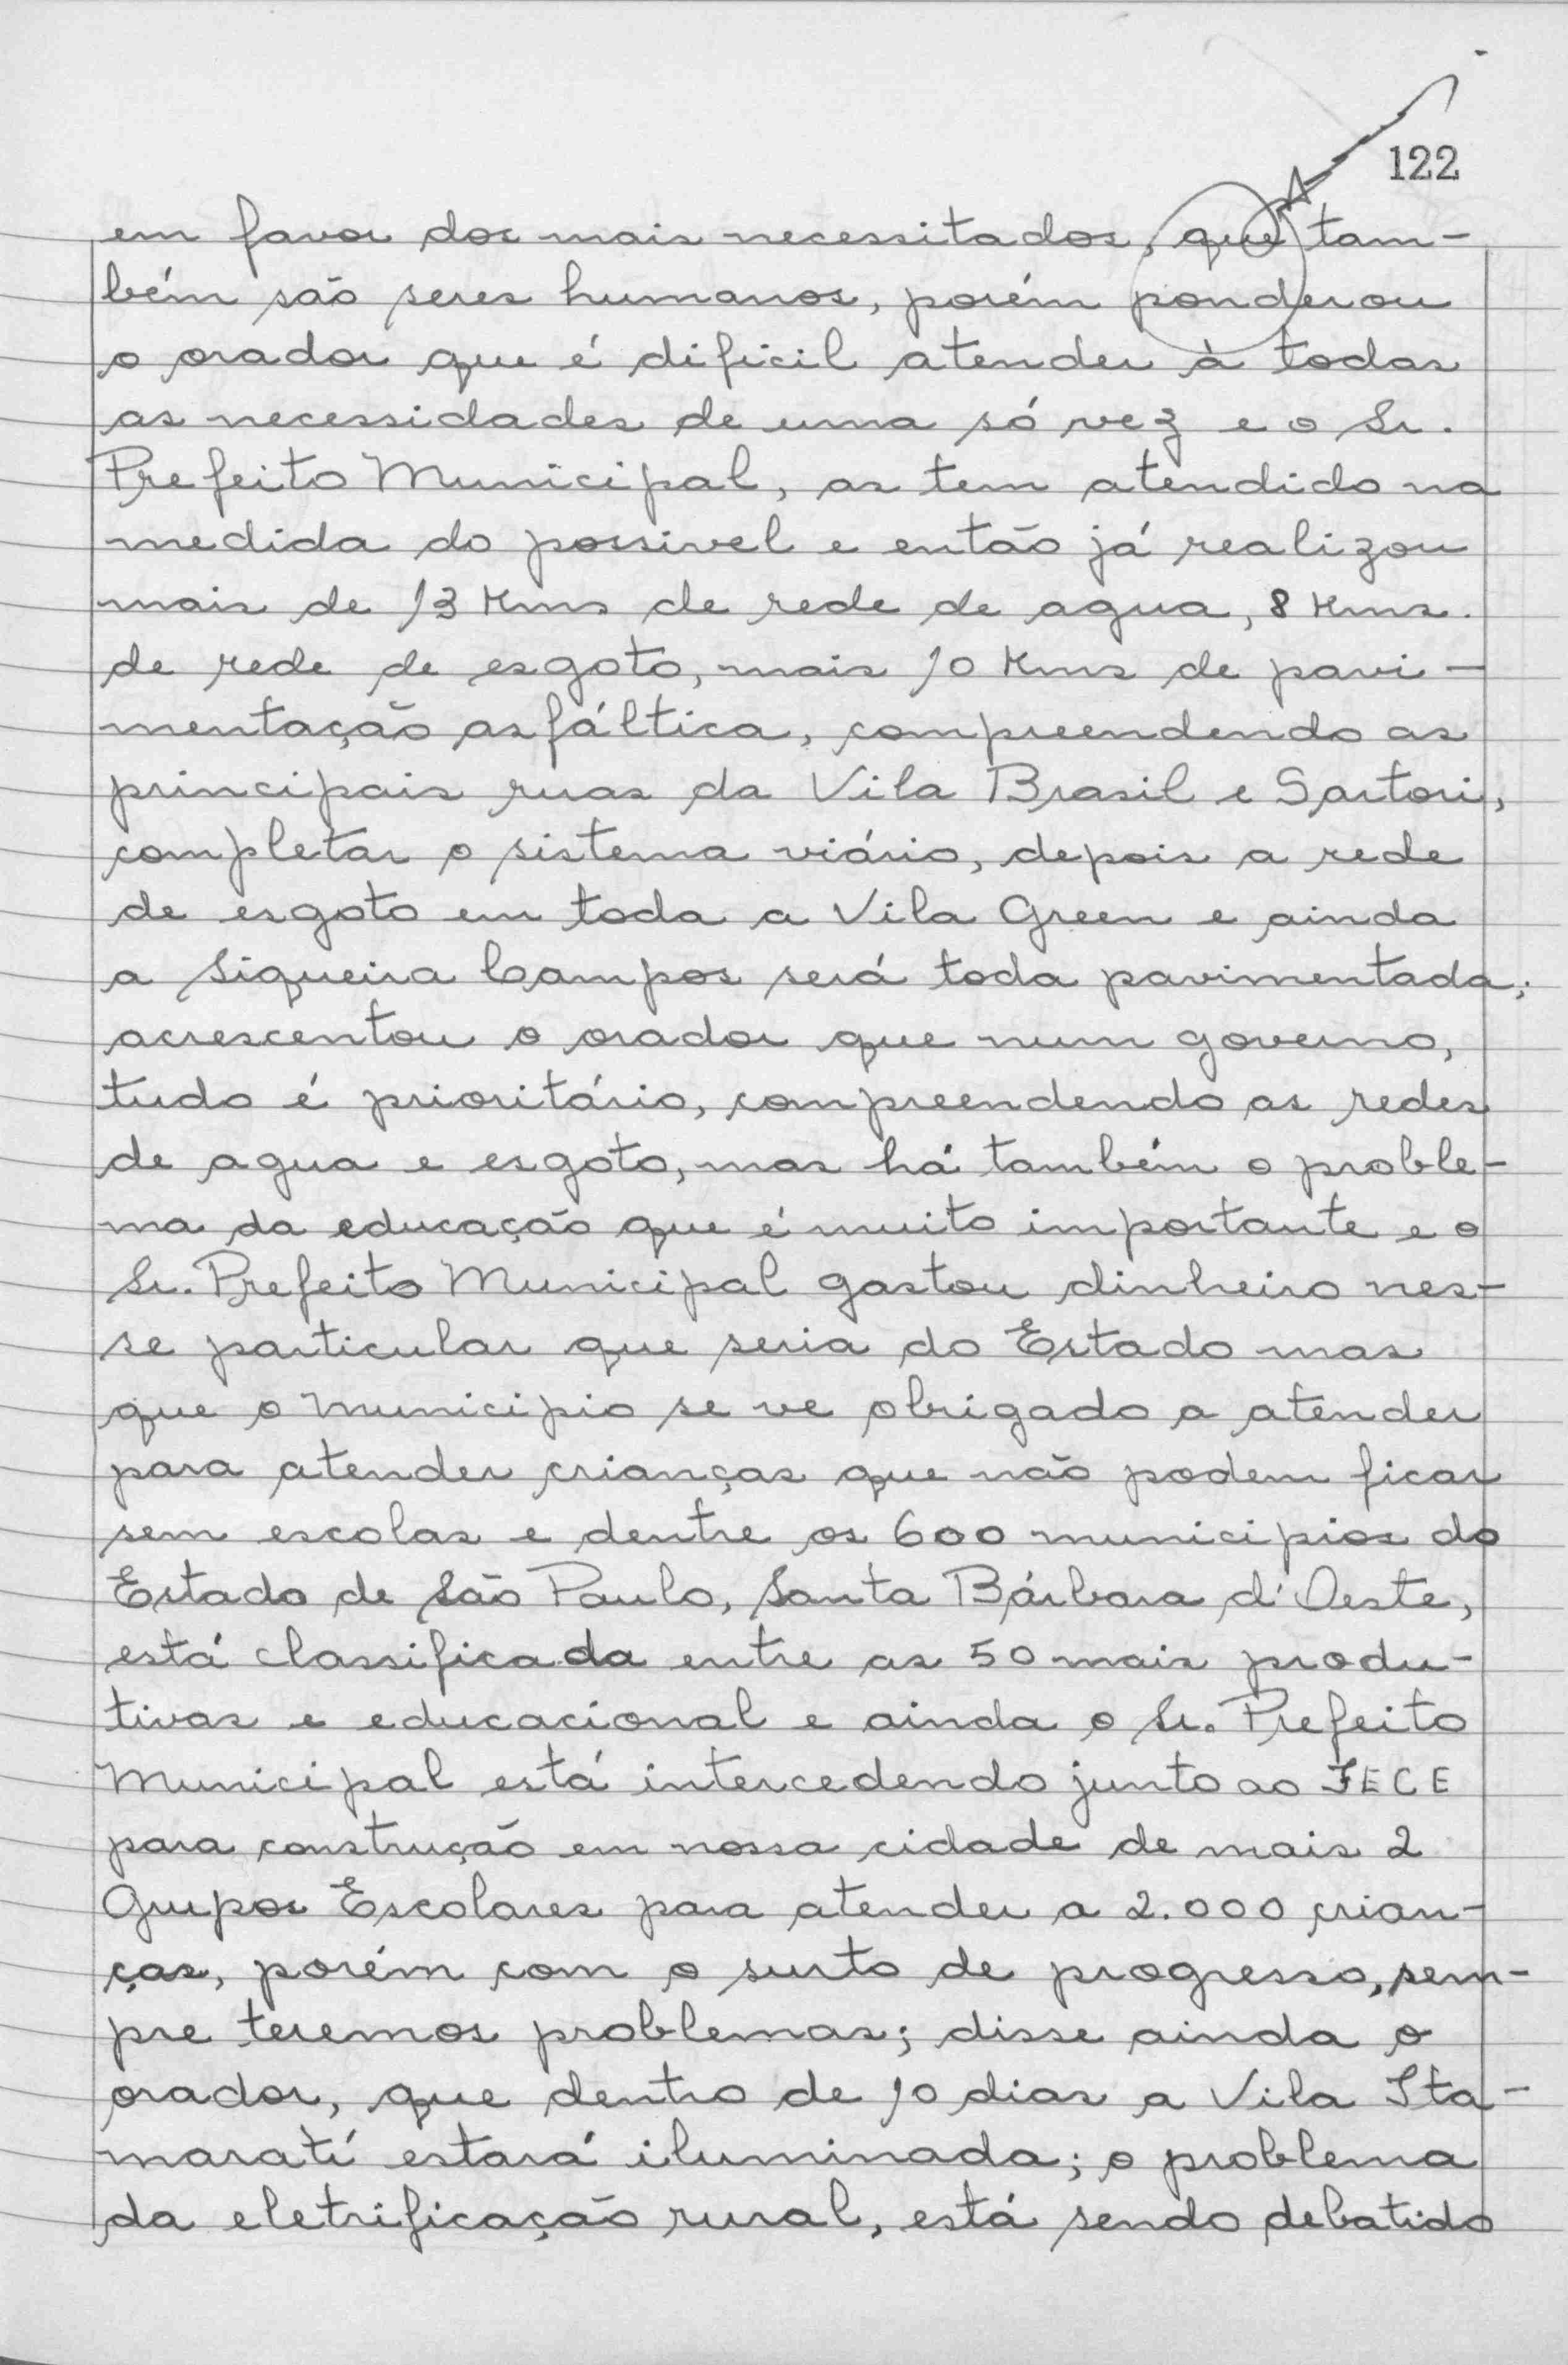 122
em favor dos mais necessitados, que tam-
bém são seres humanos, porém ponderou
o orador que é dificil atender à todas
as necessidades de uma só vez e o Sr.
Prefeito Municipal, as tem atendido na
medida do possivel e então já realizou
mais de 13 Kms de rede de agua, 8 Kms.
de rede de esgoto, mais 10 Kms de pavi-
mentação asfáltica, compreendendo as
principais ruas da Vila Brasil e Sartori,
completar o sistema viário, depois a rede
de esgoto em toda a Vila Green e ainda
a Siqueira Campos será toda pavimentada;
acrescentou o orador que num governo,
tudo é prioritário, compreendendo as redes
de agua e esgoto, mas há também o proble-
ma da educação que é muito importante e o
Sr. Prefeito Municipal gastou dinheiro nes-
se particular que seria do Estado mas
que o Municipio se ve obrigado a atender
para atender crianças que não podem ficar
sem escolas e dentre os 600 municipios do
Estado de São Paulo, Santa Bárbara d'Oeste,
está classificada entre as 50 mais produ-
tivas e educacional e ainda o Sr. Prefeito
Municipal está intercedendo junto ao FECE
para construção em nossa cidade de mais 2
Grupos Escolares para atender a 2.000 crian-
ças, porém com o surto de progresso, sem-
pre teremos problemas; disse ainda o
orador, que dentro de 10 dias a Vila Ita-
maratí estará iluminada; o problema
da eletrificação rural, está sendo debatido